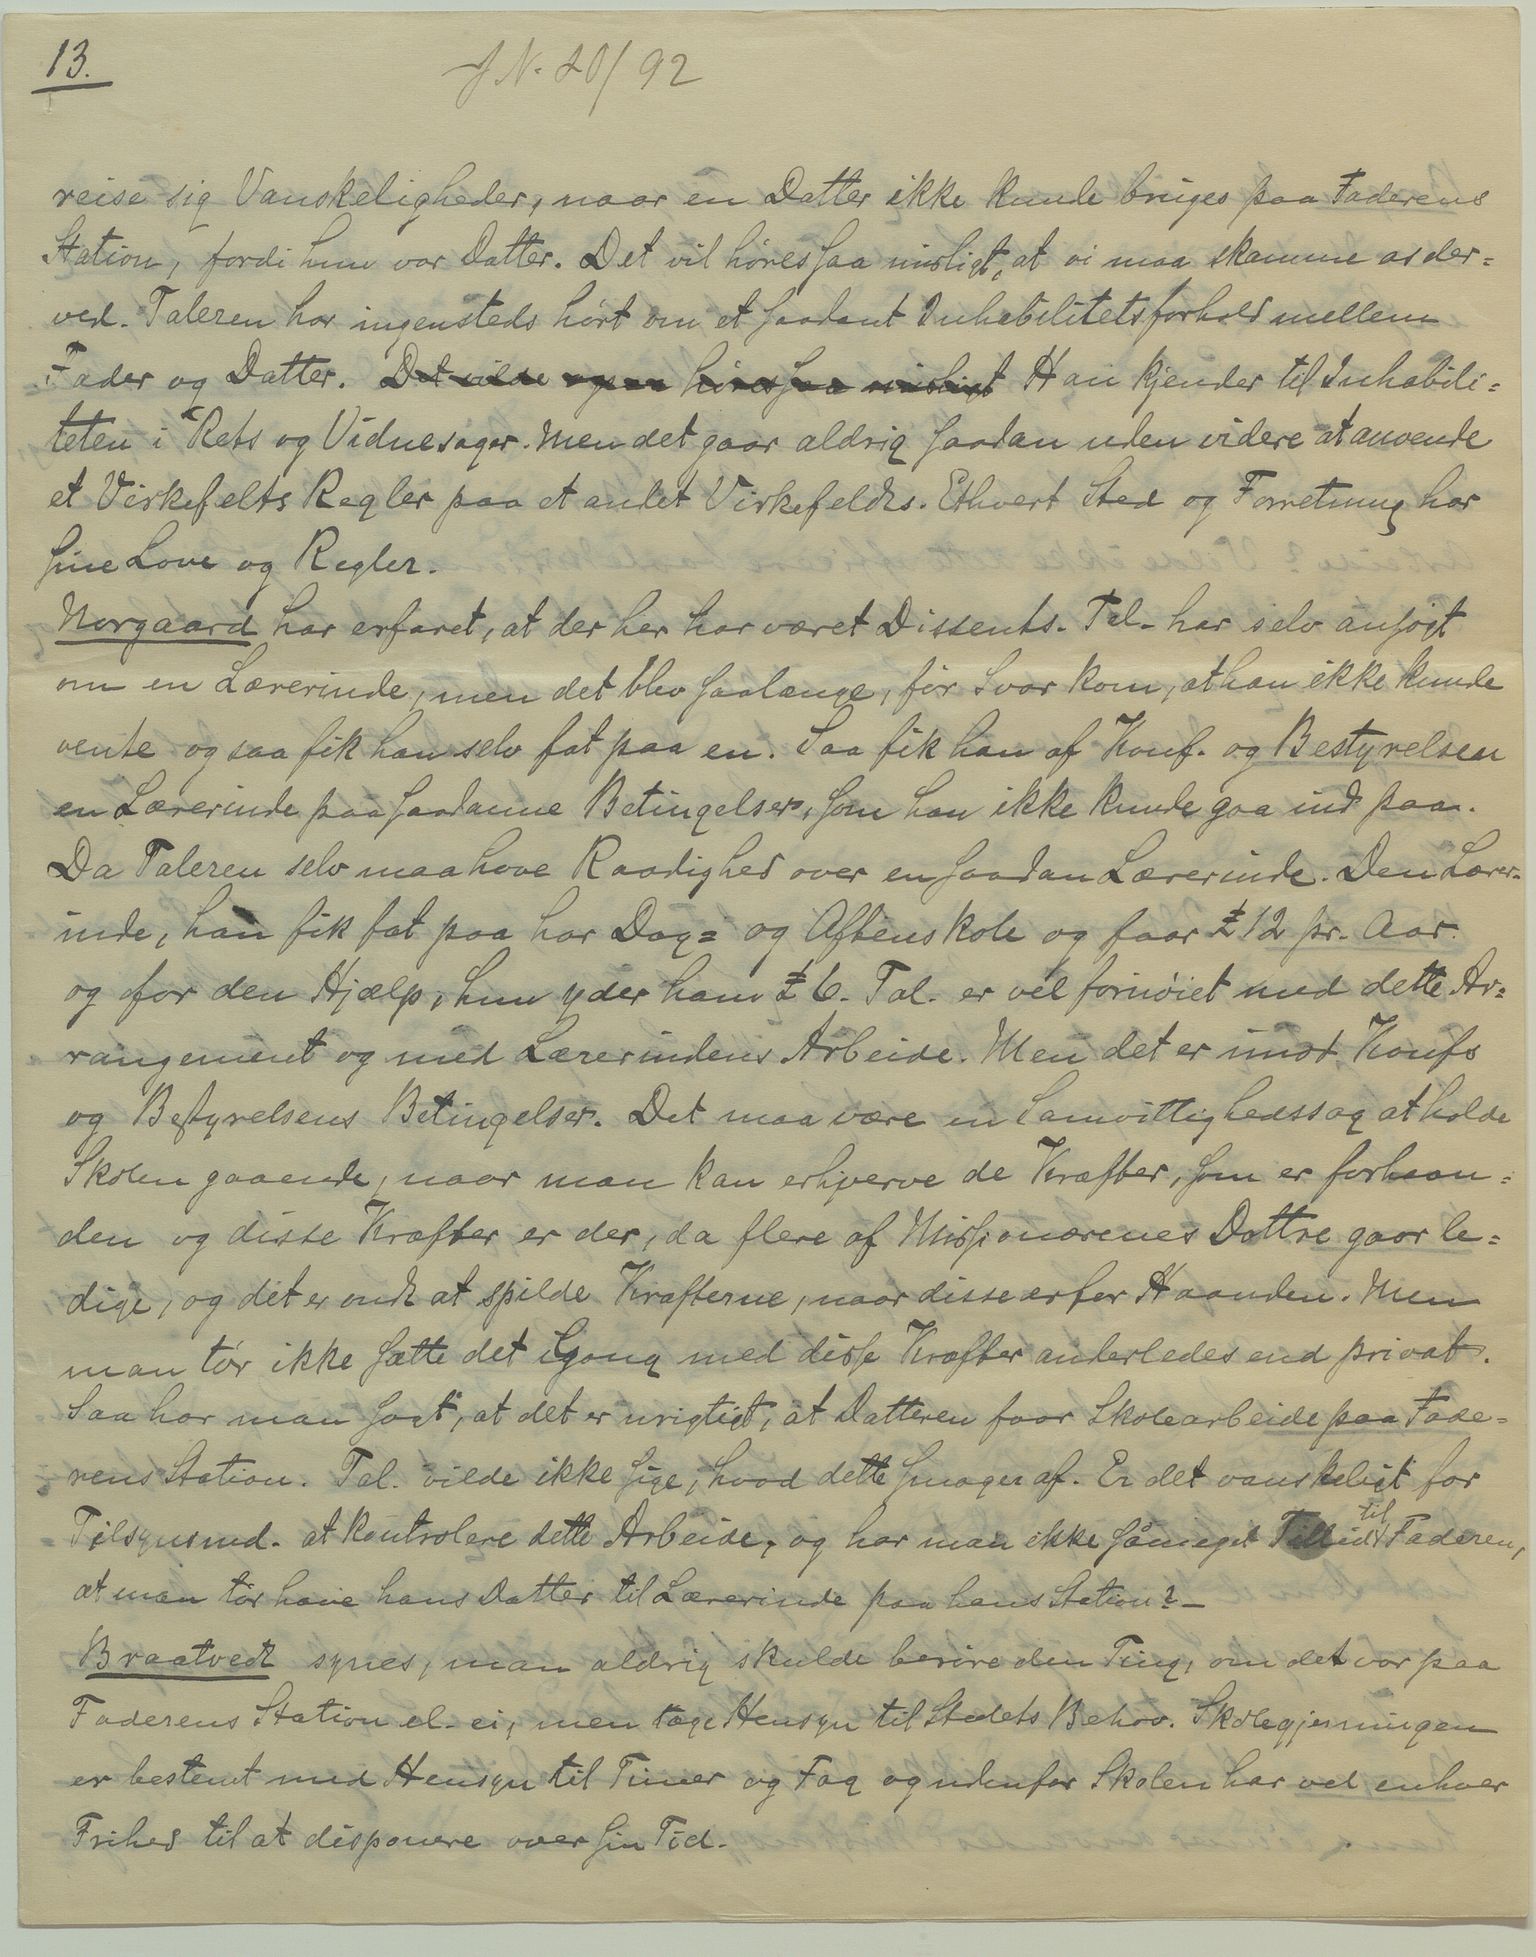 13.
J N. 20/92
reise sig Vanskeligheder, naar en Datter ikke kunde bruges paa Faderens
Station, fordi hun var Datter. Det vil høres saa misligt, at vi maa skamme os der=
ved. Taleren har ingensteds hørt om et saadant Inhabilitetsforhold mellem
Fader og Datter. Det vilde høres saa misligt Han kjender til Inhabili=
teten i Rets og Vidnesager. Men det gaar aldrig saadan uden videre at anvende
et Virkefelts Regler paa et andet Virkefeldts. Ethvert Sted og Forretning har
sine Love og Regler.
Norgaard har erfaret, at der her har været Dissents. Tal. har selv ansøgt
om en Lærerinde, men det blev saalænge, før Svar kom, at han ikke kunde
vente og saa fik han selv fat paa en. Saa fik han af Konf. og Bestyrelsen
en Lærerinde paa saadanne Betingelser, som han ikke kunde gaa ind paa.
Da Taleren selv maa have Raadighed over en saadan Lærerinde. Den Lærer=
inde, han fik fat paa har Dag= og Aftenskole og faar £ 12 pr. Aar
og for den Hjælp, hun yder ham £ 6. Tal. er vel fornøiet med dette Ar=
rangement og med Lærerindens Arbeide. Men det er imod Konfs
og Bestyrelsens Betingelser. Det maa være en Samvittighedssag at holde
Skolen gaaende, naar man kan erhverve de Kræfter, som er forhaan=
den og disse Kræfter er der, da flere af Missionærenes Døttre gaar le=
dige, og det er ondt at spilde Kræfterne, naar disse er for Haanden. Men
man tør ikke sætte det igang med disse Kræfter anderledes end privat.
Saa har man sagt, at det er urigtigt, at Datteren faar Skolearbeide paa Fade=
rens Station. Tal. vilde ikke sige, hvad dette smager af. Er det vanskeligt for
Tilsynsmd. at kontrolere dette Arbeide, og har man ikke såmeget Tillid til Faderen,
at man tør have hans Datter til Lærerinde paa hans Station? —
Braatvedt synes, man aldrig skulde berøre den Ting, om det var paa
Faderens Station el. ei, men tage Hensyn til Stedets Behov. Skolegjerningen
er bestemt med Hensyn til Timer og Fag og udenfor Skolen har vel enhver
Frihed til at disponere over sin Tid.